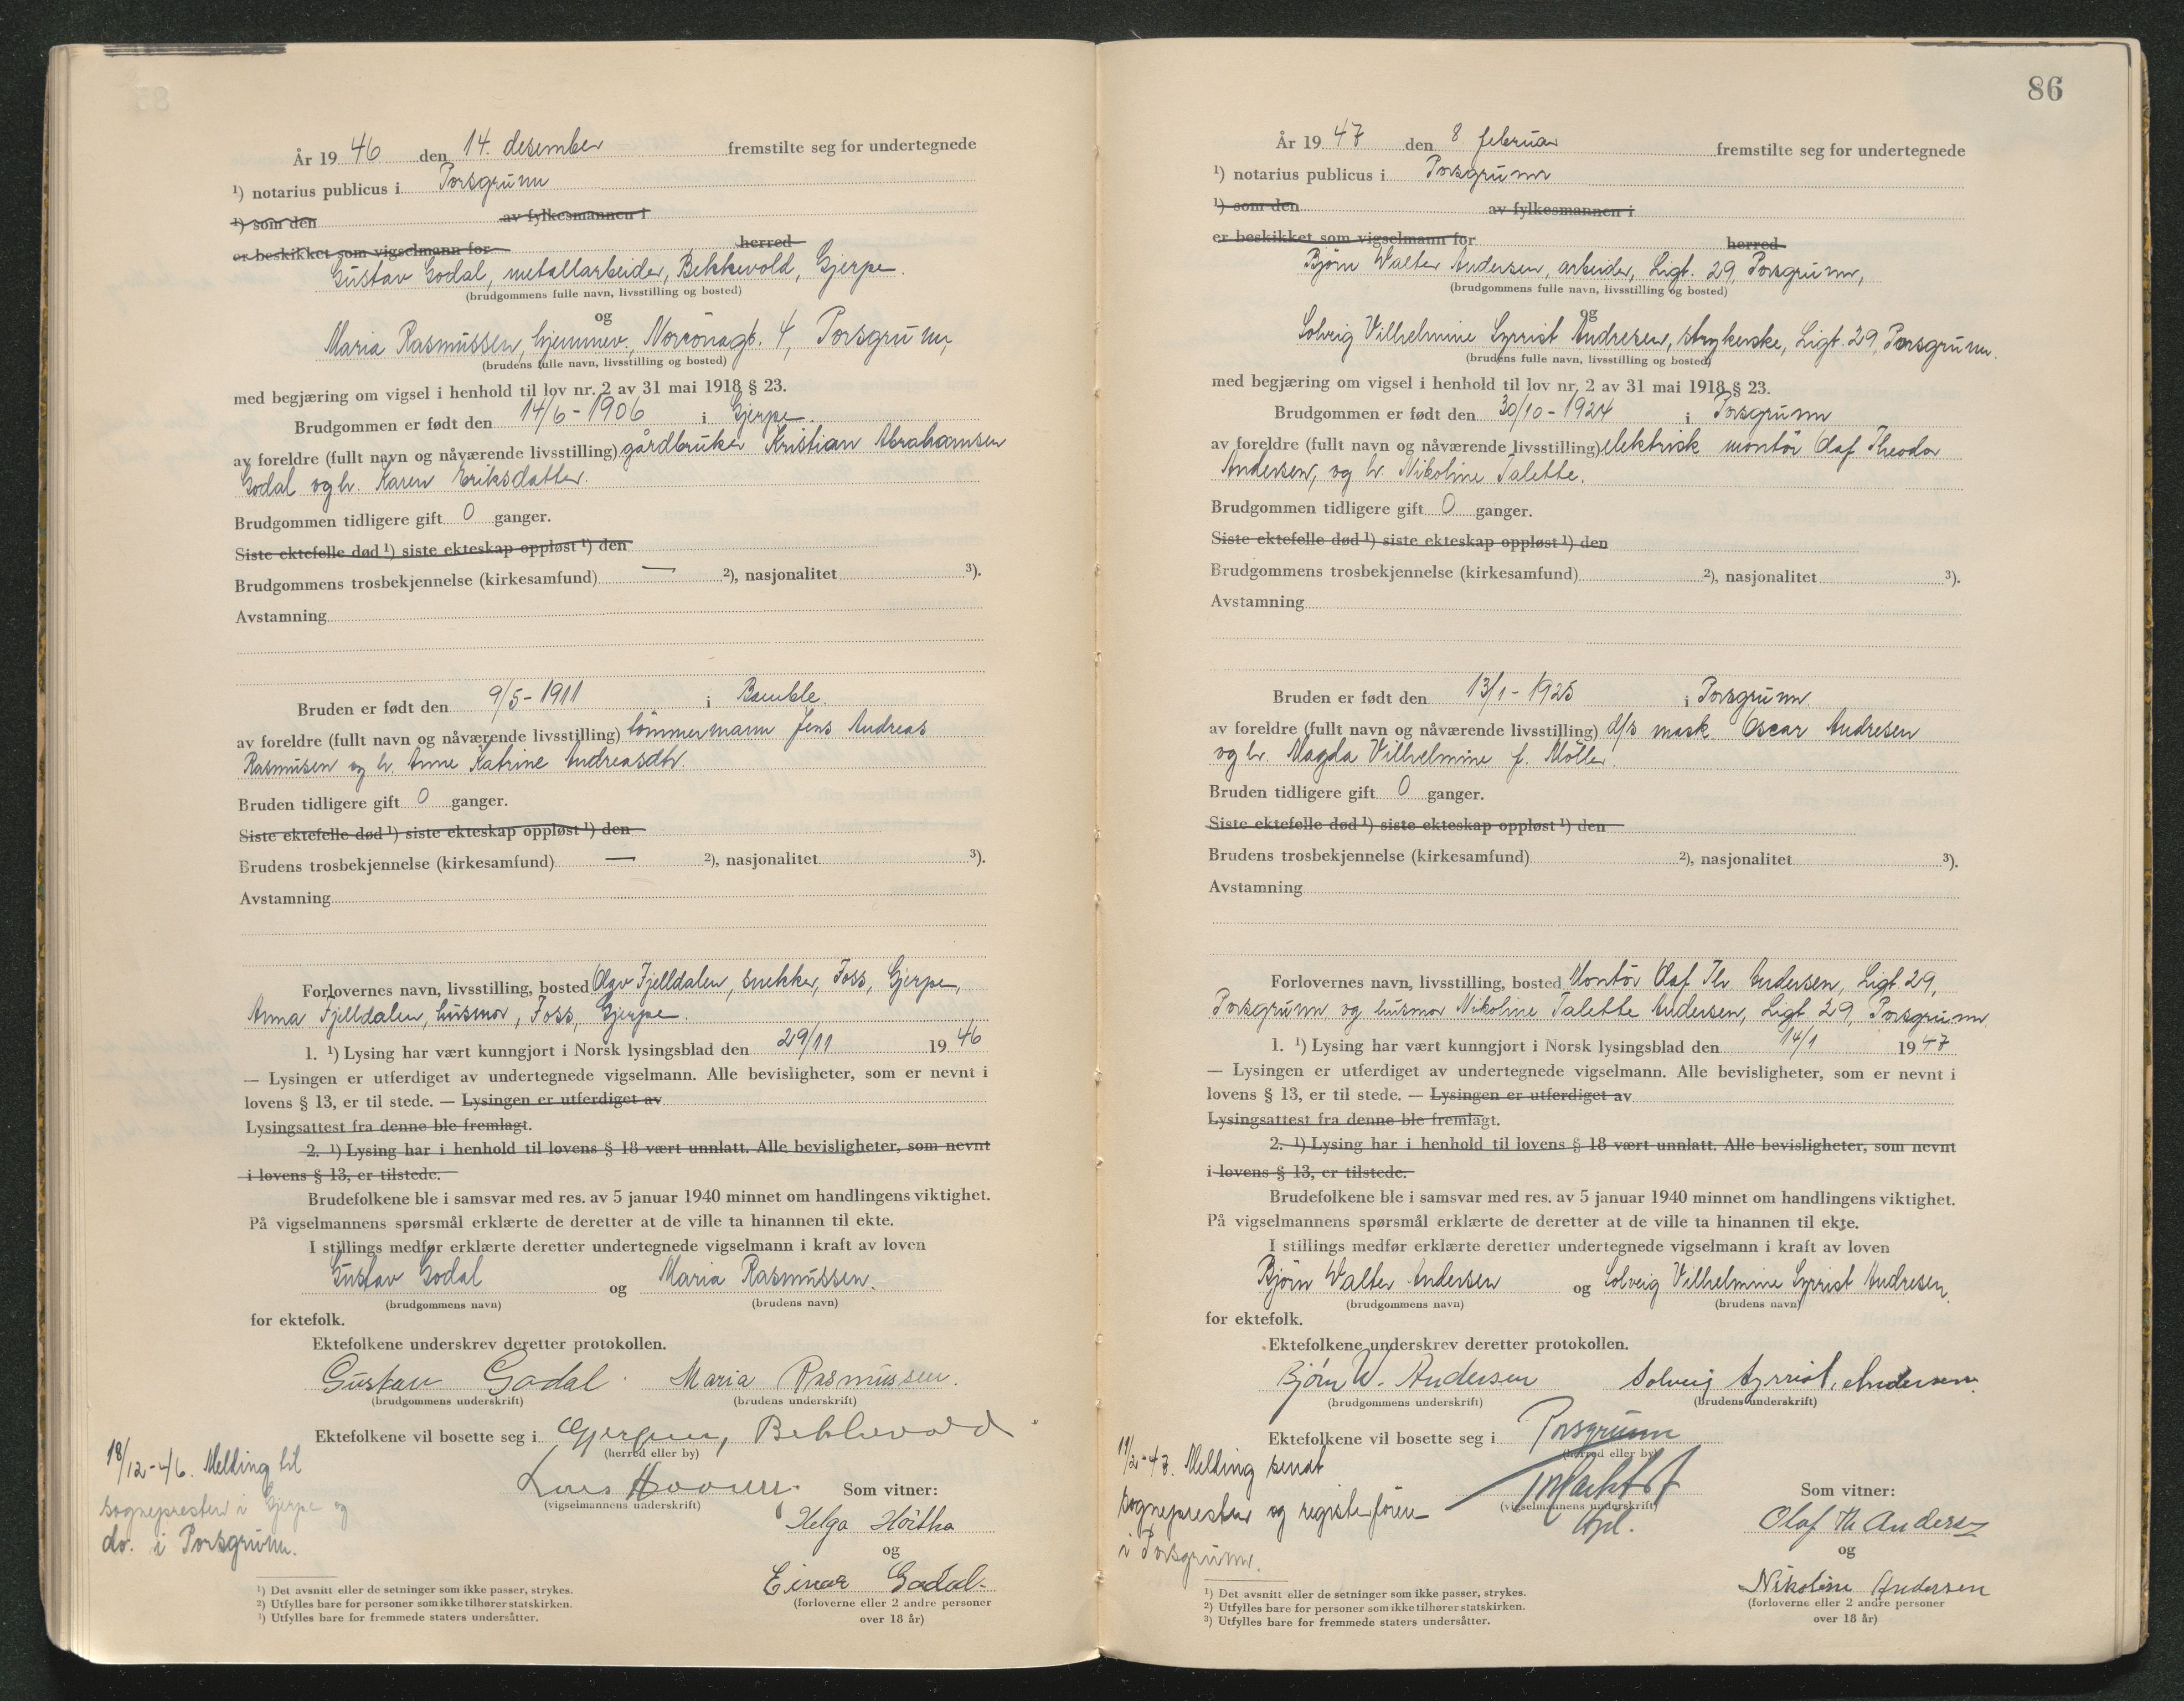 År 19 46 den 14. desember fremstilte seg for undertegnede
¹) notarius publicus i Porsgrunn
¹) som den av fylkesmannen i
er beskikket som vigselmann for herred
Gustav Godal, metallarbeider, Bekkevold, Gjerpen.
(brudgommens fulle navn, livsstilling og bosted)
og
Maria Rasmussen, hjemmev., Norrönagt. 4, Porsgrunn,
(brudens fulle navn, livsstilling og bosted)
med begjæring om vigsel i henhold til lov nr. 2 av 31 mai 1918 § 23.
Brudgommen er født den 14/6-1906 i Gjerpen.
av foreldre (fullt navn og nåværende livsstilling) gårdbruker Kristian Abrahamsen
Godal og h. Karen Eriksdatter.
Brudgommen tidligere gift 0 ganger.
Siste ektefelle død ¹) siste ekteskap oppløst ¹) den
Brudgommens trosbekjennelse (kirkesamfund) — ²), nasjonalitet ³).
Avstamning
Bruden er født den 9/5-1911 i Bamble.
av foreldre (fullt navn og nåværende livsstilling) tömmermann Jens Andreas
Rasmusen og h. Anne Katrine Andreasdtr.
Bruden tidligere gift 0 ganger.
Siste ektefelle død ¹) siste ekteskap oppløst ¹) den
Brudens trosbekjennelse (kirkesamfund) — ²), nasjonalitet ³).
Avstamning
Forlovernes navn, livsstilling, bosted Olav Fjelldalen, snekker, Foss, Gjerpen,
Anna Fjelldalen, husmor, Foss, Gjerpen.
1. ¹) Lysing har vært kunngjort i Norsk lysingsblad den 29/11 19 46
— Lysingen er utferdiget av undertegnede vigselmann. Alle bevisligheter, som er nevnt i
lovens § 13, er til stede. — Lysingen er utferdiget av
Lysingsattest fra denne ble fremlagt.
2. ¹) Lysing har i henhold til lovens § 18 vært unnlatt. Alle bevisligheter, som nevnt
i lovens § 13, er tilstede.
Brudefolkene ble i samsvar med res. av 5 januar 1940 minnet om handlingens viktighet.
På vigselmannens spørsmål erklærte de deretter at de ville ta hinannen til ekte.
I stillings medfør erklærte deretter undertegnede vigselmann i kraft av loven
Gustav Godal og Maria Rasmussen.
(brudgommens navn) (brudens navn)
for ektefolk.
Ektefolkene underskrev deretter protokollen.
Gustav Godal. Maria Rasmussen.
(brudgommens underskrift) (brudens underskrift)
Ektefolkene vil bosette seg i Gjerpen, Bekkevold
(herred eller by)
18/12-46. Melding til
sogneprester i Gjerpen og
do. i Porsgrunn.
(vigselmannens underskrift)
Som vitner:
Helga
og
Einar Godal.
(forloverne eller 2 andre personer
over 18 år)
¹) Det avsnitt eller de setninger som ikke passer, strykes.
²) Utfylles bare for personer som ikke tilhører statskirken.
³) Utfylles bare for fremmede staters undersåtter.
86
År 19 47 den 8 februar fremstilte seg for undertegnede
¹) notarius publicus i Porsgrunn
¹) som den av fylkesmannen i
er beskikket som vigselmann for herred
Björn Walter Andersen, arbeider, Ligt. 29, Porsgrunn,
(brudgommens fulle navn, livsstilling og bosted)
og
Solveig Vilhelmine Syrrist Andresen, strykerske, Ligt. 29, Porsgrunn.
(brudens fulle navn, livsstilling og bosted)
med begjæring om vigsel i henhold til lov nr. 2 av 31 mai 1918 § 23.
Brudgommen er født den 30/10-1924 i Porsgrunn
av foreldre (fullt navn og nåværende livsstilling) elektrisk montör Olaf Theodor
Andersen, og h. Nikoline Talette.
Brudgommen tidligere gift 0 ganger.
Siste ektefelle død ¹) siste ekteskap oppløst ¹) den
Brudgommens trosbekjennelse (kirkesamfund) ²), nasjonalitet ³).
Avstamning
Bruden er født den 13/1-1925 i Porsgrunn.
av foreldre (fullt navn og nåværende livsstilling) d/s mask. Oscar Andresen
og h. Magda Vilhelmine f. Möller.
Bruden tidligere gift 0 ganger.
Siste ektefelle død ¹) siste ekteskap oppløst ¹) den
Brudens trosbekjennelse (kirkesamfund) ²), nasjonalitet ³).
Avstamning
Forlovernes navn, livsstilling, bosted Montör Olaf Th. Andersen, Ligt 29,
Porsgrunn og husmor Nikoline Talette Andersen, Ligt. 29, Porsgrunn
1. ¹) Lysing har vært kunngjort i Norsk lysingsblad den 14/1 19 47
— Lysingen er utferdiget av undertegnede vigselmann. Alle bevisligheter, som er nevnt i
lovens § 13, er til stede. — Lysingen er utferdiget av
Lysingsattest fra denne ble fremlagt.
2. ¹) Lysing har i henhold til lovens § 18 vært unnlatt. Alle bevisligheter, som nevnt
i lovens § 13, er tilstede.
Brudefolkene ble i samsvar med res. av 5 januar 1940 minnet om handlingens viktighet.
På vigselmannens spørsmål erklærte de deretter at de ville ta hinannen til ekte.
I stillings medfør erklærte deretter undertegnede vigselmann i kraft av loven
Björn Walter Andersen og Solveig Vilhelmine Syrrist Andresen.
(brudgommens navn) (brudens navn)
for ektefolk.
Ektefolkene underskrev deretter protokollen.
Bjørn W. Andersen Solveig Syrrist. Andersen.
(brudgommens underskrift) (brudens underskrift)
Ektefolkene vil bosette seg i Porsgrunn
(herred eller by)
11/2-47. Melding sendt
sogneprester og registerförer
i Porsgrunn.
(vigselmannens underskrift)
Som vitner:
Olaf Th Andersen
og
Nikoline Andersen
(forloverne eller 2 andre personer
over 18 år)
¹) Det avsnitt eller de setninger som ikke passer, strykes.
²) Utfylles bare for personer som ikke tilhører statskirken.
³) Utfylles bare for fremmede staters undersåtter.